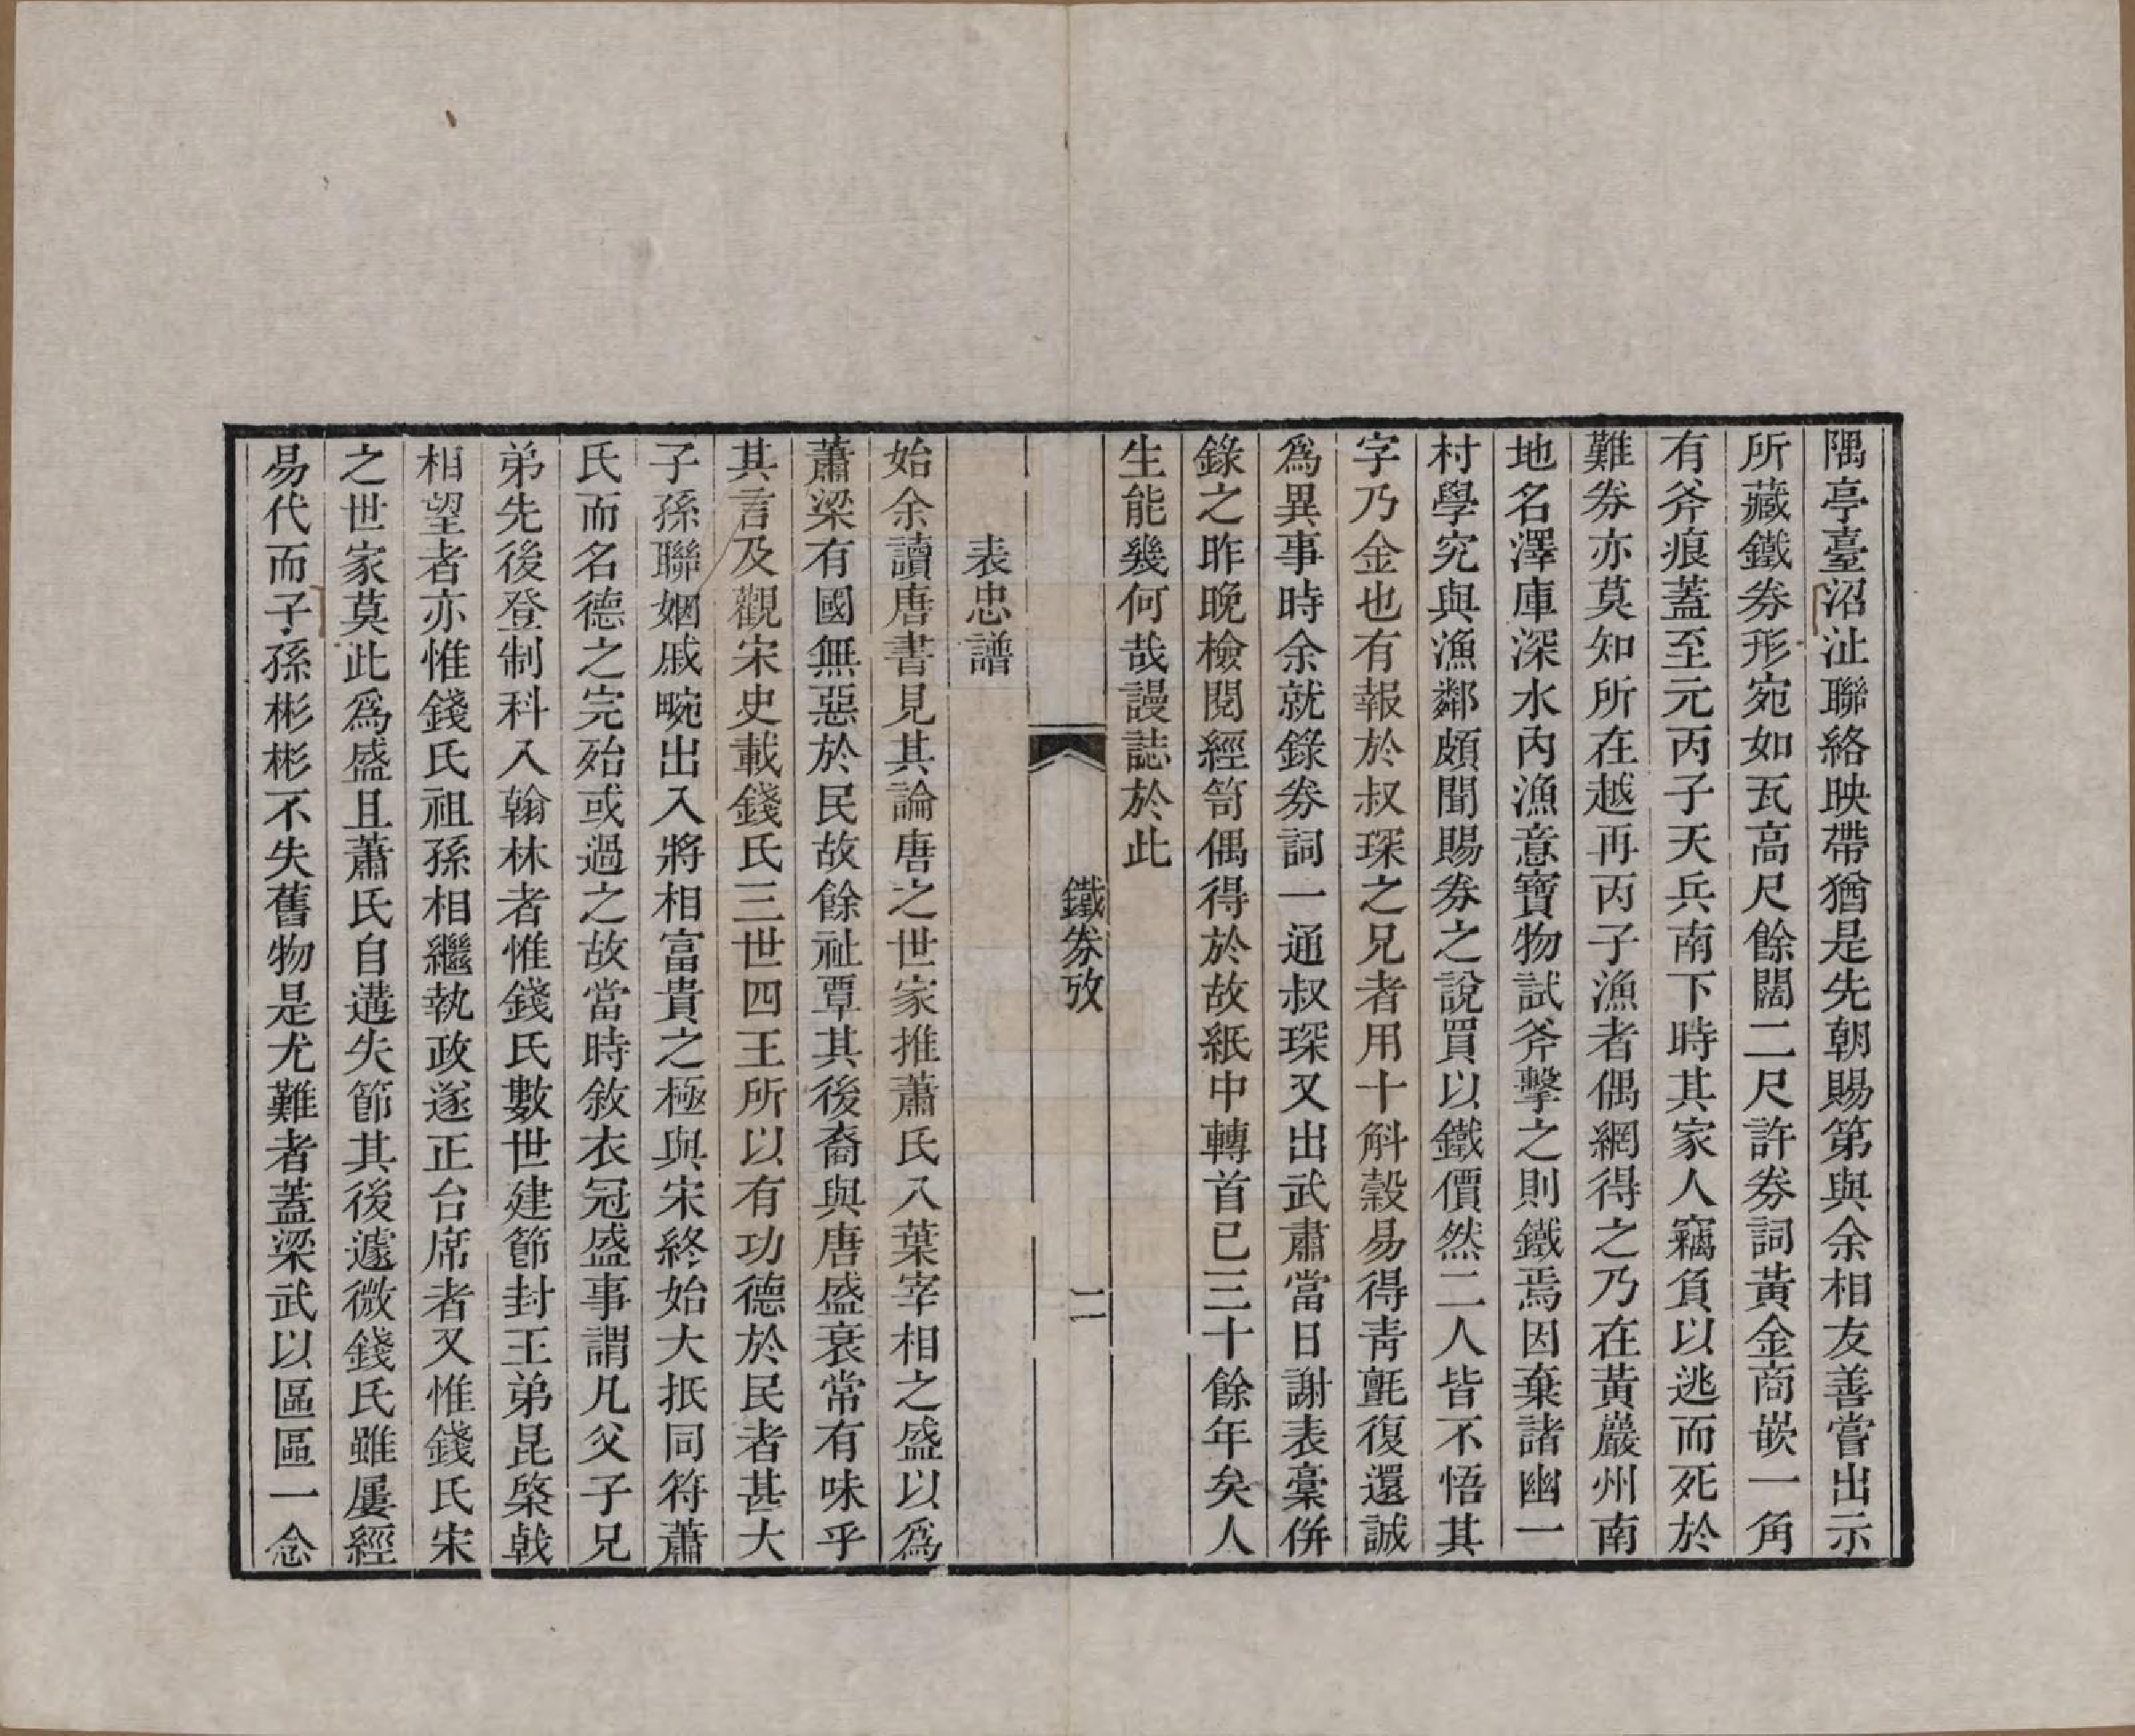 隅亭臺沼沚聯絡映帶猶是先朝賜第與余相友善嘗出示
所藏鐵券形宛如瓦高尺餘闊二尺許券詞黃金商嵌一角
有斧痕蓋至元丙子天兵南下時其家人竊負以逃而死於
難券亦莫知所在越再丙子漁者偶網得之乃在黃巖州南
地名澤庫深水內漁意寶物試斧擊之則鐵焉因棄諸幽一
村學究與漁鄰頗聞賜券之說買以鐵價然二人皆不悟其
字乃金也有報於叔琛之兄者用十斛穀易得青氈復還誠
爲異事時余就錄券詞一通叔琛又出武肅當日謝表槀併
錄之昨晚檢閱經笥偶得於故紙中轉首已三十餘年矣人
生能幾何哉謾誌於此
鐵券攷
二
表忠譜
始余讀唐書見其論唐之世家推蕭氏入葉宰相之盛以爲
蕭梁有國無惡於民故餘祉覃其後裔與唐盛衰常有味乎
其言及觀宋史載錢氏三世四王所以有功德於民者甚大
子孫聯姻戚畹出入將相富貴之極與宋終始大抵同符蕭
氏而名德之完殆或過之故當時敘衣冠盛事謂凡父子兄
弟先後登制科入翰林者惟錢氏數世建節封王弟昆棨戟
相望者亦惟錢氏祖孫相繼執政遂正台席者又惟錢氏宋
之世家莫此爲盛且蕭氏自遘失節其後遽微錢氏雖屢經
易代而子孫彬彬不失舊物是尤難者蓋梁武以區區一念